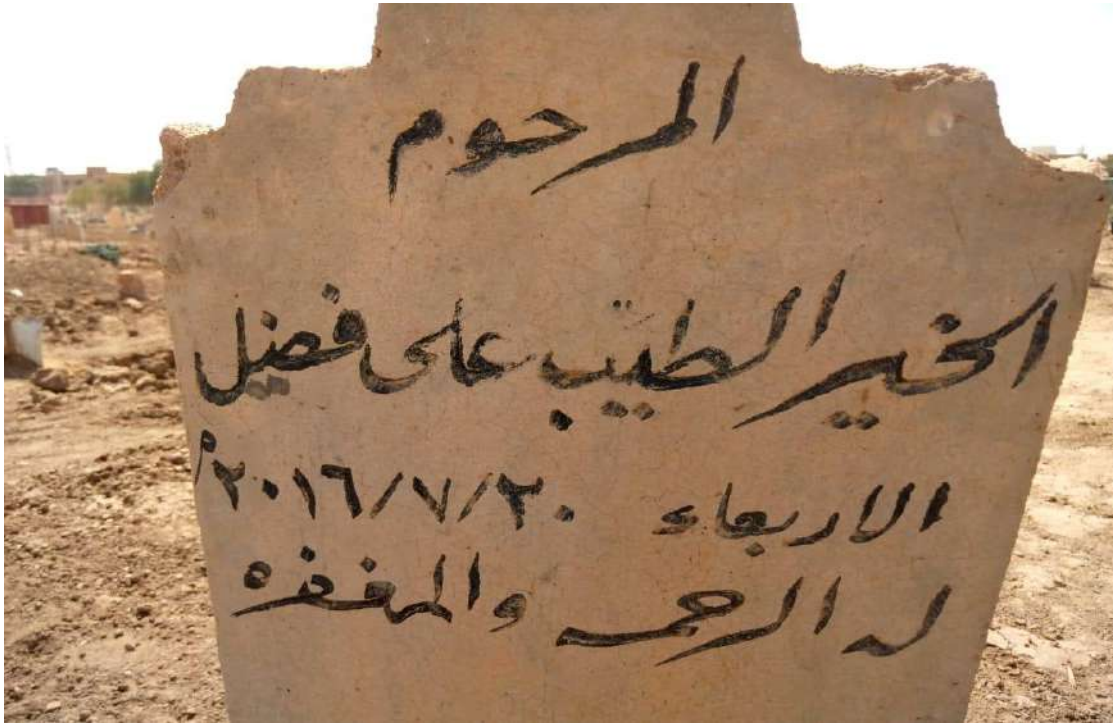 المرحوم
الخير الطيب على فضيل
الاربعاء ٢٠/٧/٢٠١٦م
له الرحمه والمغفره